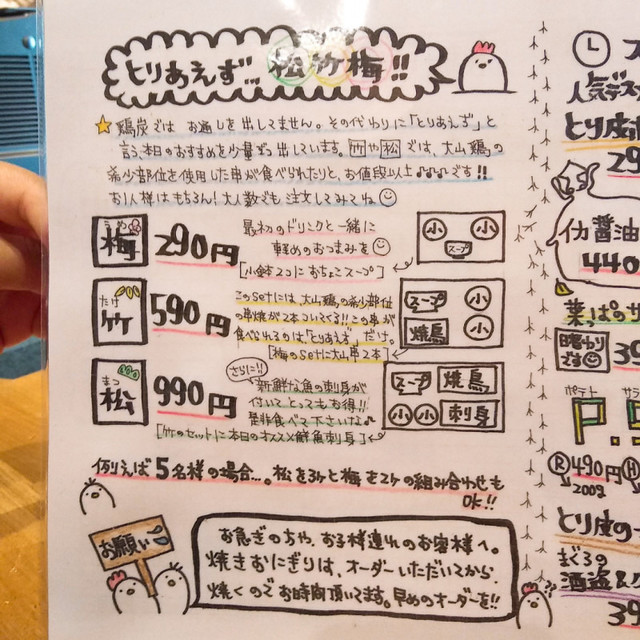 とりあえず… 松竹梅!!
鶏炭では お通しを出してません。その代わりに「とりあえず」と
言う、本日のおすすめを少量ずつ出しています。竹や松では、大山鶏の
希少部位を使用した串が食べられたりと、お値段以上♪♪♪です!!
お1人様はもちろん!大人数でも注文してみてね。
うめ
梅
290円
最初のドリンクと一緒に
軽めのおつまみを
[小鉢2コにおちょこスープ]
小 小
スープ
たけ
竹
590円
このsetには、大山鶏の希少部位
の串焼が2本ついてくる!!この串が
食べれるのは「とりあえず」だけ。
[梅のsetに大山串2本]
スープ 小
焼鳥 小
まつ
松
990円
さらに!!
新鮮な魚の刺身が
付いてとってもお得!!
是非食べて下さいな♪
[竹のセットに本日のオススメ鮮魚刺身]
スープ 焼鳥
小 小 刺身
例えば5名様の場合…。松を3ケと梅を2ケの組み合わせも
OK!!
お願い
お急ぎの方や、お子様連れのお客様へ。
焼きおにぎりは、オーダーいただいてから
焼くのでお時間頂いてます。早めのオーダーを!!
人気デス
とり皮ポ
29
イカ醤油
440
葉っぱのサ
日替わり
です
39
ポテト サラ
P.S
R 490円 H
200g
とり皮の
まぐろの
酒盗&ク
39